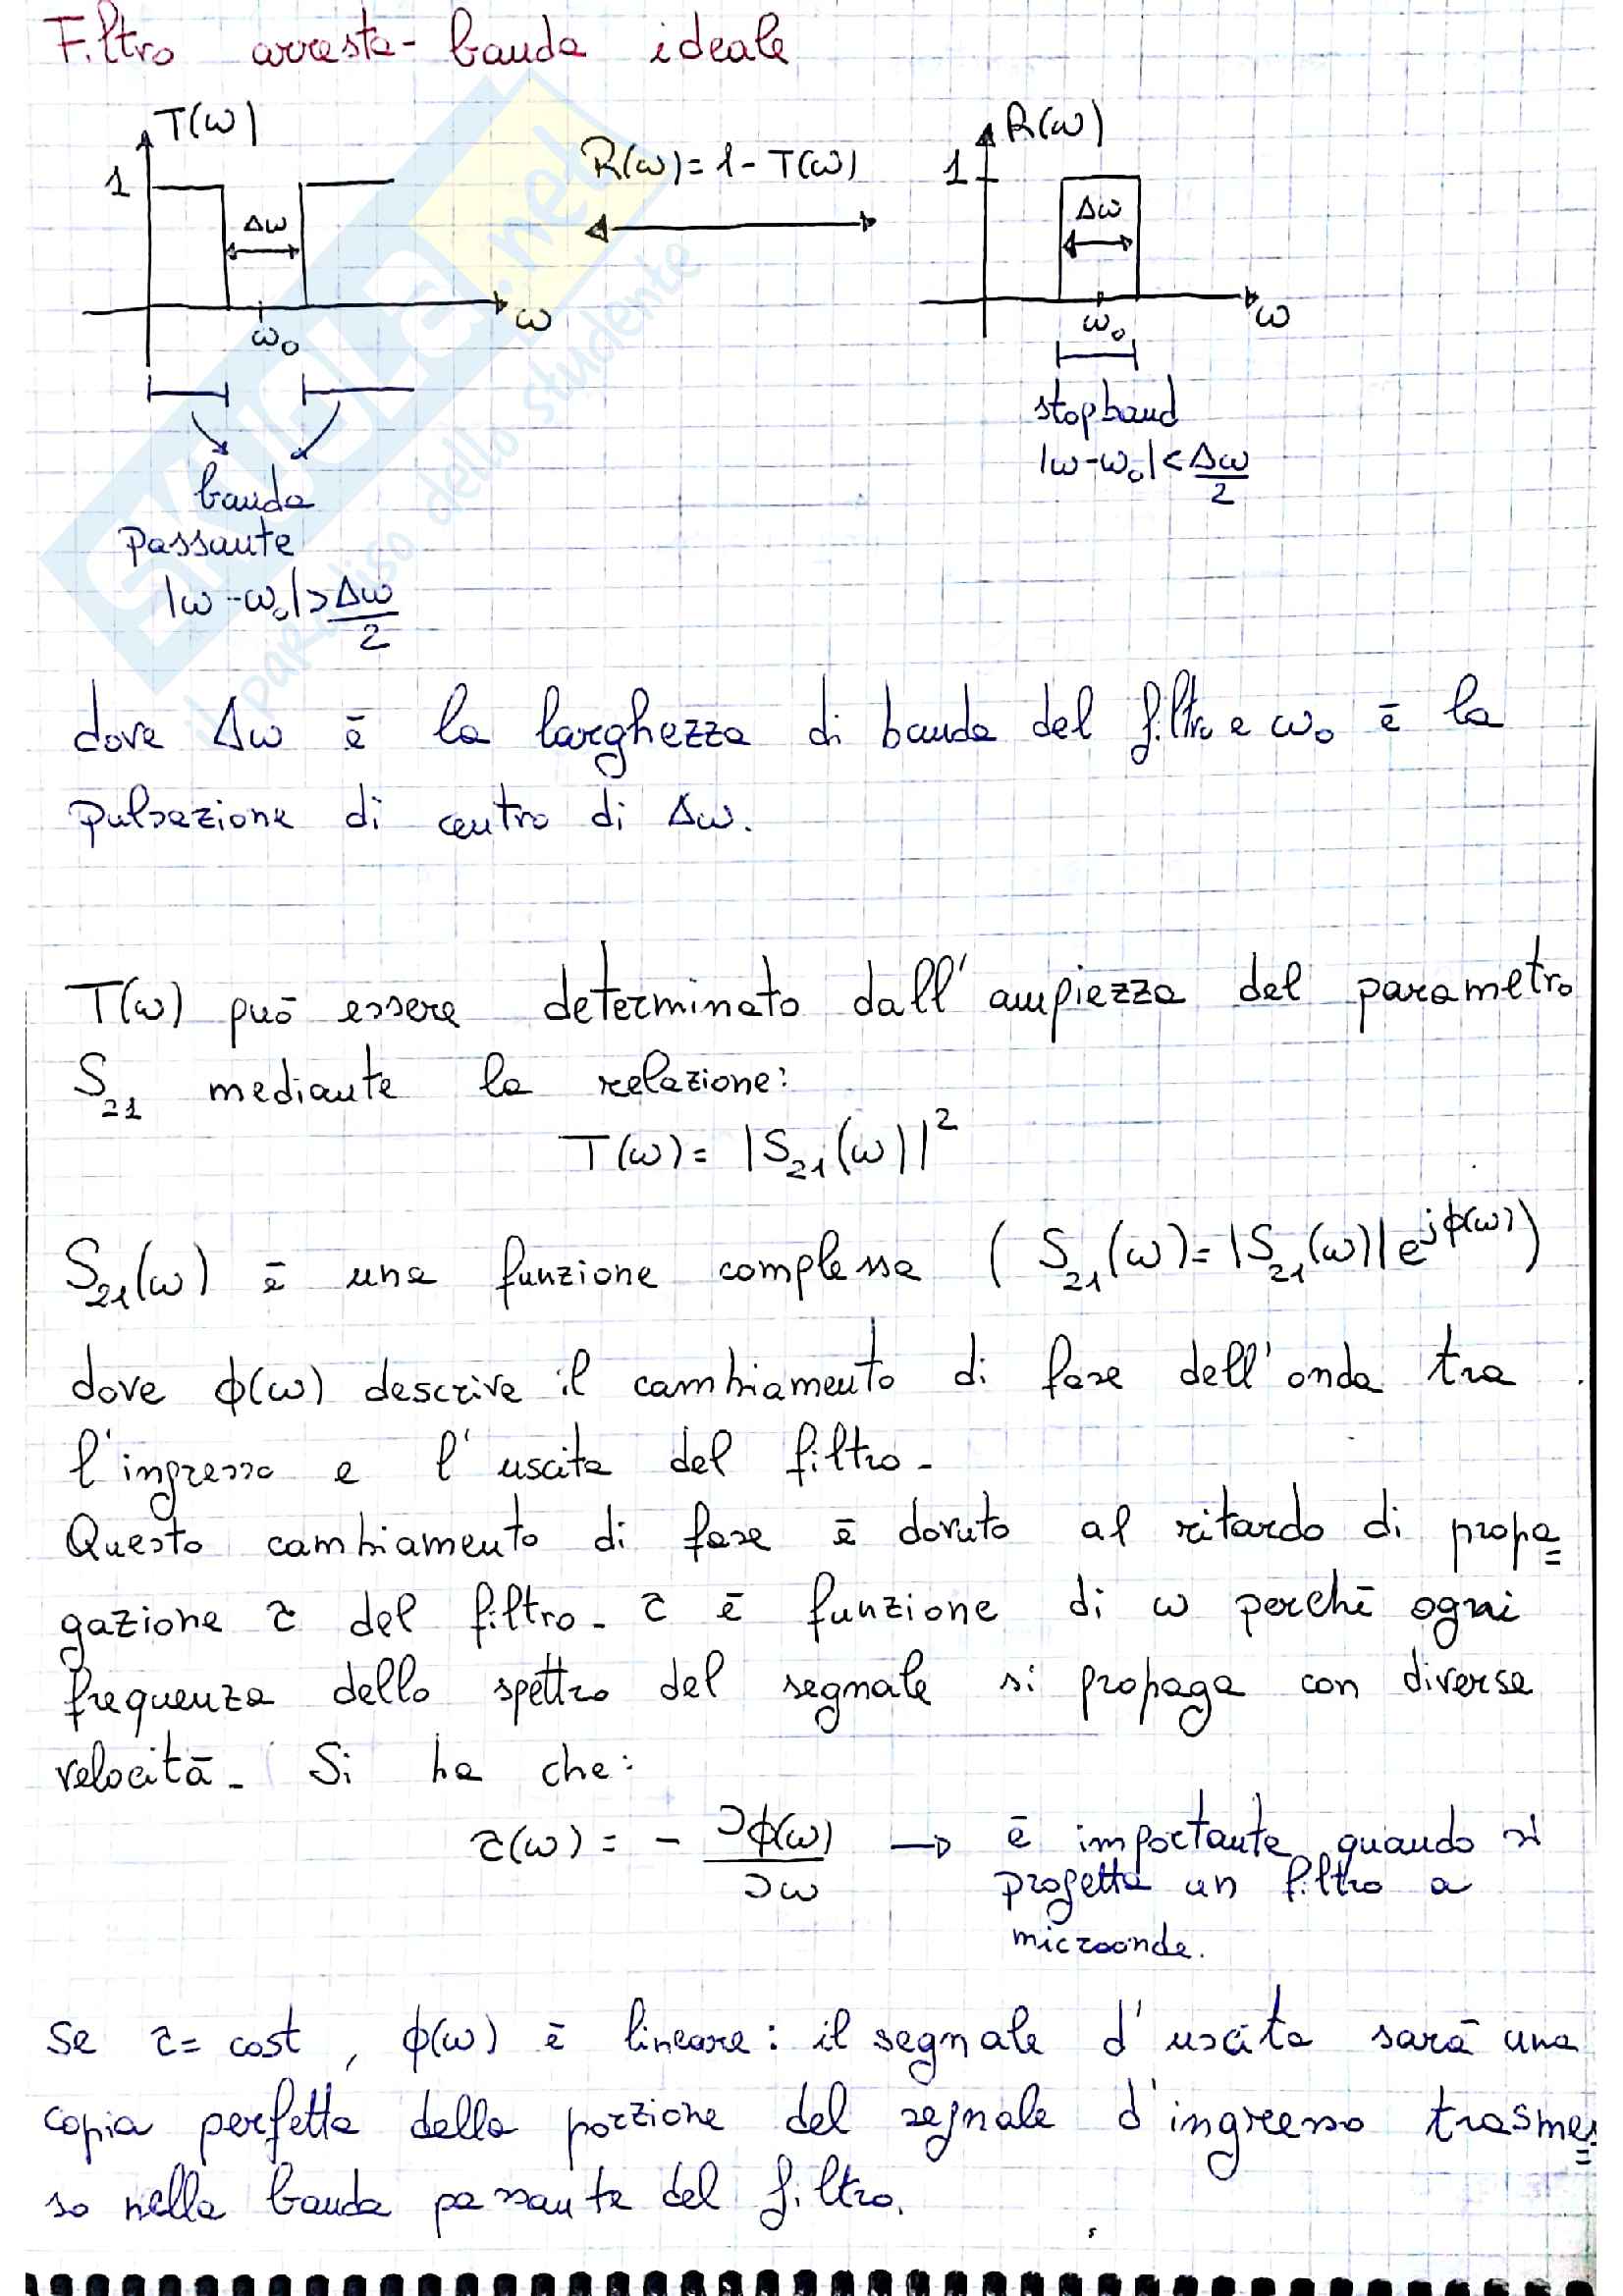 Filtro arresta-banda ideale
T(ω)
1
Δω
ω₀
ω
R(ω)=1-T(ω)
R(ω)
1
Δω
ω₀
ω
banda
passante
|ω-ω₀|>Δω/2
stopband
|ω-ω₀|<Δω/2
SKUOLA.net
il paradiso dello studente
dove Δω è la larghezza di banda del filtro e ω₀ è la
pulsazione di centro di Δω.
T(ω) può essere determinato dall'ampiezza del parametro
S₂₁ mediante la relazione:
T(ω)= |S₂₁(ω)|²
S₂₁(ω) è una funzione complessa ( S₂₁(ω)=|S₂₁(ω)|e^jϕ(ω) )
dove ϕ(ω) descrive il cambiamento di fase dell'onda tra
l'ingresso e l'uscita del filtro.
Questo cambiamento di fase è dovuto al ritardo di propa=
gazione τ del filtro. τ è funzione di ω perchè ogni
frequenza dello spettro del segnale si propaga con diversa
velocità. Si ha che:
τ(ω) = - ∂ϕ(ω)/∂ω → è importante quando si
progetta un filtro a
microonde.
Se τ= cost, ϕ(ω) è lineare: il segnale d'uscita sarà una
copia perfetta della porzione del segnale d'ingresso trasmes=
so nella banda passante del filtro.